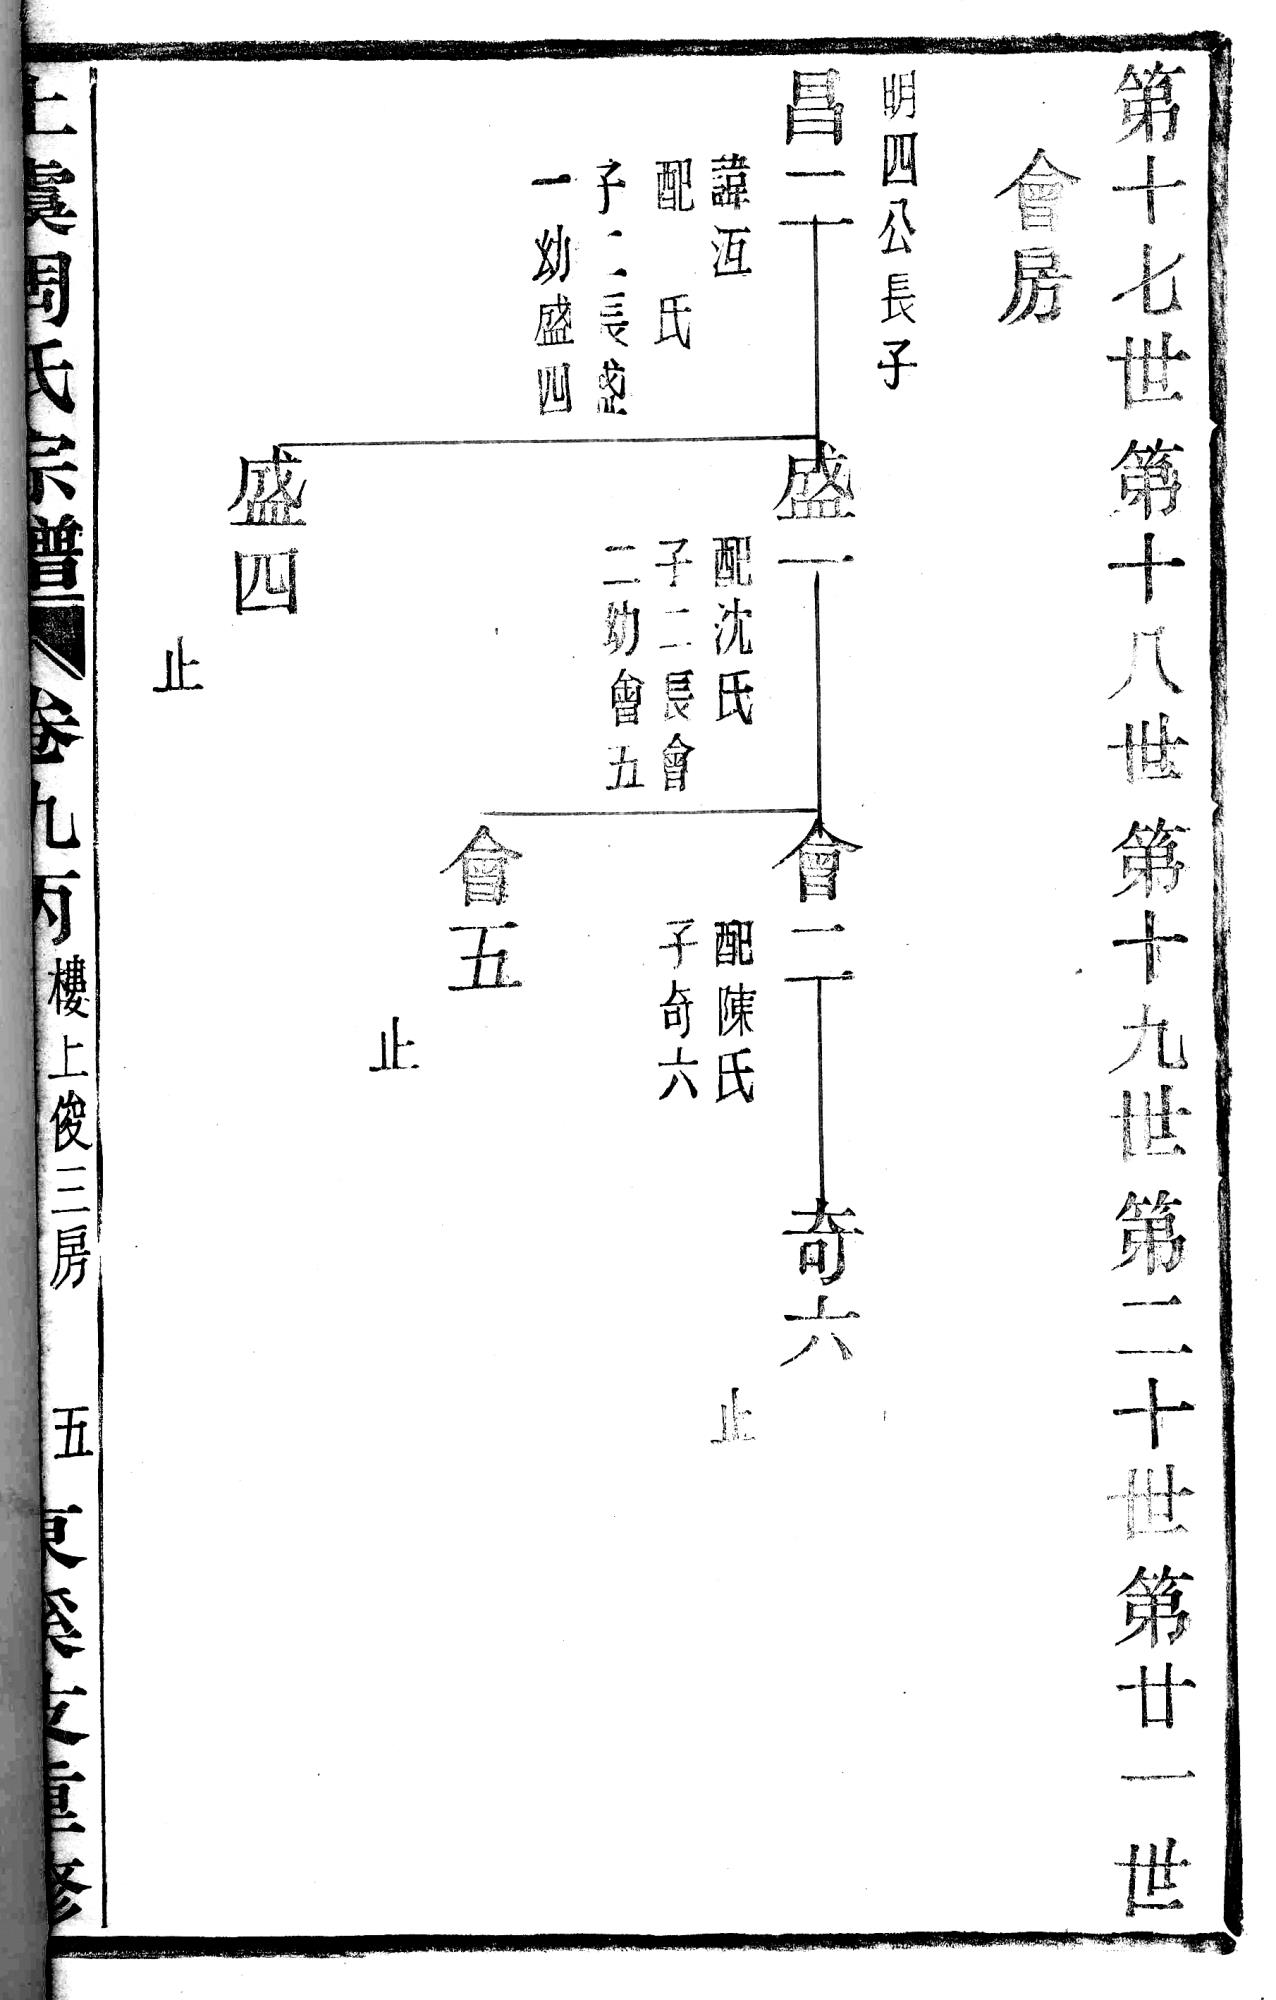 第十七世 第十八世 第十九世 第二十世 第廿一世
會房
明四公長子
昌二
諱沍
配 氏
子二長盛
一幼盛四
盛一
配沈氏
子二長會
二幼會五
會二
配陳氏
子奇六
奇六
止
會五
止
盛四
止
上虞周氏宗譜 卷九丙 樓上俊三房 五 東溪支重修